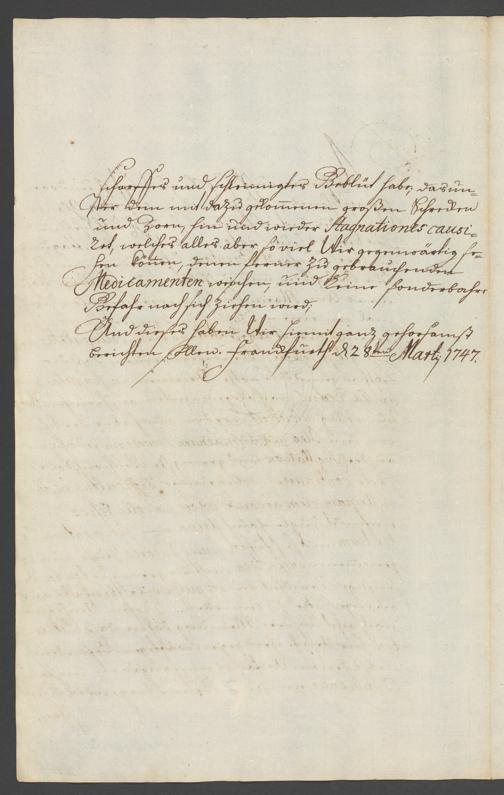 scharffes und schleimigtes Geblüt habe, das un-
ter dem mit dazu gekommenen großen Schrecken
und Zorn, hin und wieder Stagnationes causi-
ret, welches alles aber, so viel Wir gegenwärtig se-
hen können, denen ferner zu gebrauchenden
Medicamenten weichen, und keine sonderbahre
Gefahr nach sich ziehen wird,
Und dieses haben Wir hiemit ganz gehorsamst
berichten sollen. Franckfurth d. 28ten Martÿ 1747.